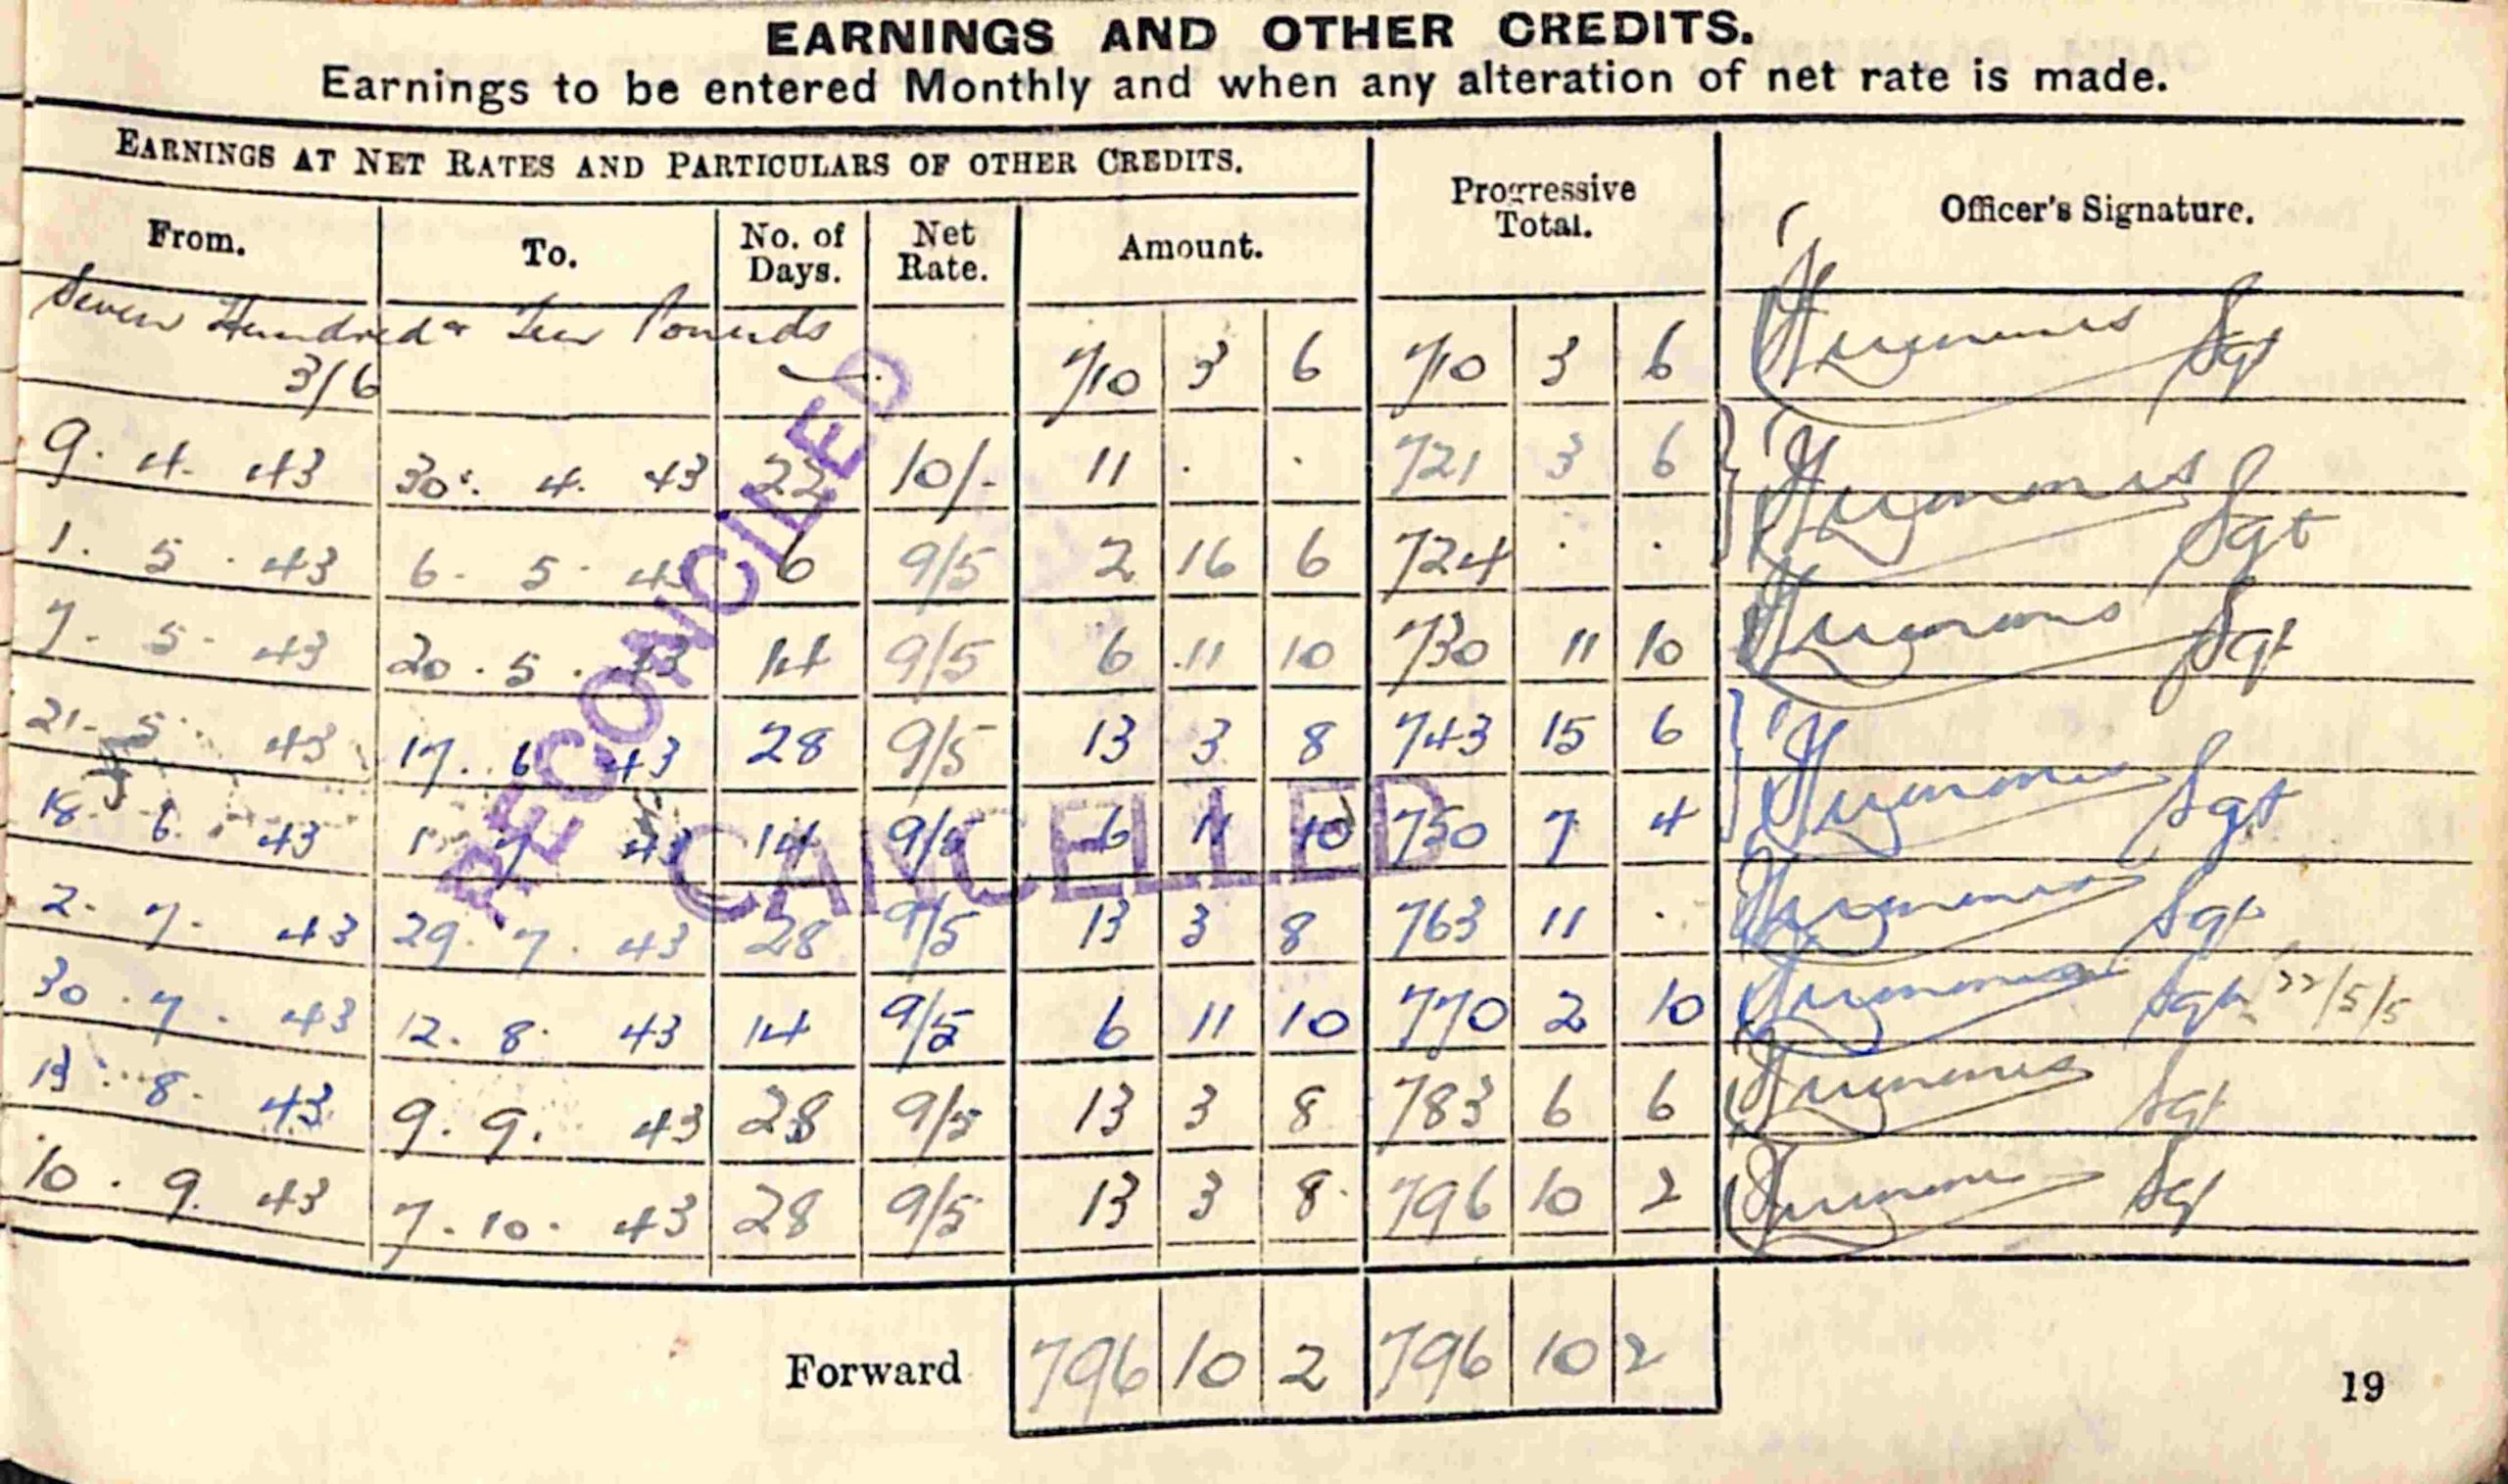 EARNINGS AND OTHER CREDITS.
Earnings to be entered Monthly and when any alteration of net rate is made.
EARNINGS AT NET RATES AND PARTICULARS OF OTHER CREDITS. Progressive Total. Officer's Signature.
From. To. No. of Days. Net Rate. Amount.
Seven Hundred & Ten Pounds
3/6 710 3 6 710 3 6 Sgt
9. 4. 43 30. 4. 43 22 10/- 11 . . 721 3 6
1. 5. 43 6. 5. 43 6 9/5 2 16 6 724 . . Sgt
7. 5. 43 20. 5. 43 14 9/5 6 11 10 730 11 10 Sgt
21. 5. 43 17. 6 43 28 9/5 13 3 8 743 15 6
18. 6. 43 1 7 43 14 9/5 6 11 10 750 7 4 Sgt
2. 7. 43 29. 7. 43 28 9/5 13 3 8 763 11 . Sgt
30. 7. 43 12. 8. 43 14 9/5 6 11 10 770 2 10 Sgt 22/5/5
13. 8. 43 9. 9. 43 28 9/5 13 3 8 783 6 6 Sgt
10. 9. 43 7. 10. 43 28 9/5 13 3 8 796 10 2 Sgt
RECONCILED
CANCELLED
Forward 796 10 2 796 10 2
19